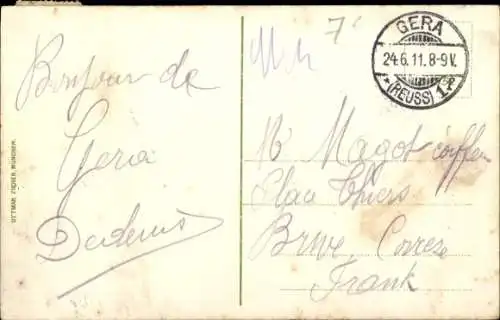 Bonjour de
Gera
OTTMAR ZIEHER, MÜNCHEN.
7
GERA
24.6.11.8-9V.
*(REUSS)1*
Mr Magot coiffeur
Place Thiers
Brive Correze
Frank